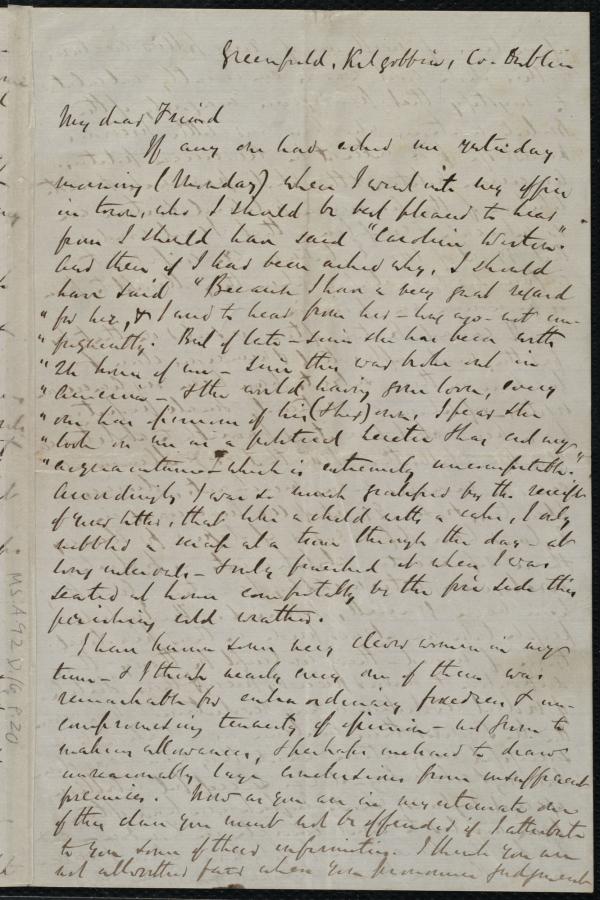 Greenfield, Kilgobbin, Co. Dublin
My dear Friend
If any one had asked me yesterday
morning (Monday) when I went into my office
in town, who I should be best pleased to hear
from I should have said "Caroline Weston".
And then if I had been asked why, I should
have said "Because I have a very great regard
" for her, & I used to hear from her - long ago - not un-
" frequently. But of late - since she has been with
" in America - & the world having gone
" one has opinions of his (& her) own, I fear she
" look on me as a political heretic & has cut my
" acquaintance - which is extremely uncomfortable."
Accordingly I was so much gratified by the receipt
of your letter, that like a child with a cake, I only
nibbled a scrap at a time through the day - at
long intervals - & only finished it when I was
seated at home comfortably by the fire side this
perishing cold weather.
I have known some very clever women in my
time - & I think nearly every one of them was
remarkable for extraordinary fixedness & un-
compromising tenacity of opinion - not given to
making allowances, & perhaps inclined to draw
unreasonably large conclusions from insufficient
premises. Now as you are in my estimate one
of this class you must not be offended if I attribute
to you some of these infirmities. I think you are
not altogether fair when you pronounce judgment
Ms.A.9.2 v.16 p.20